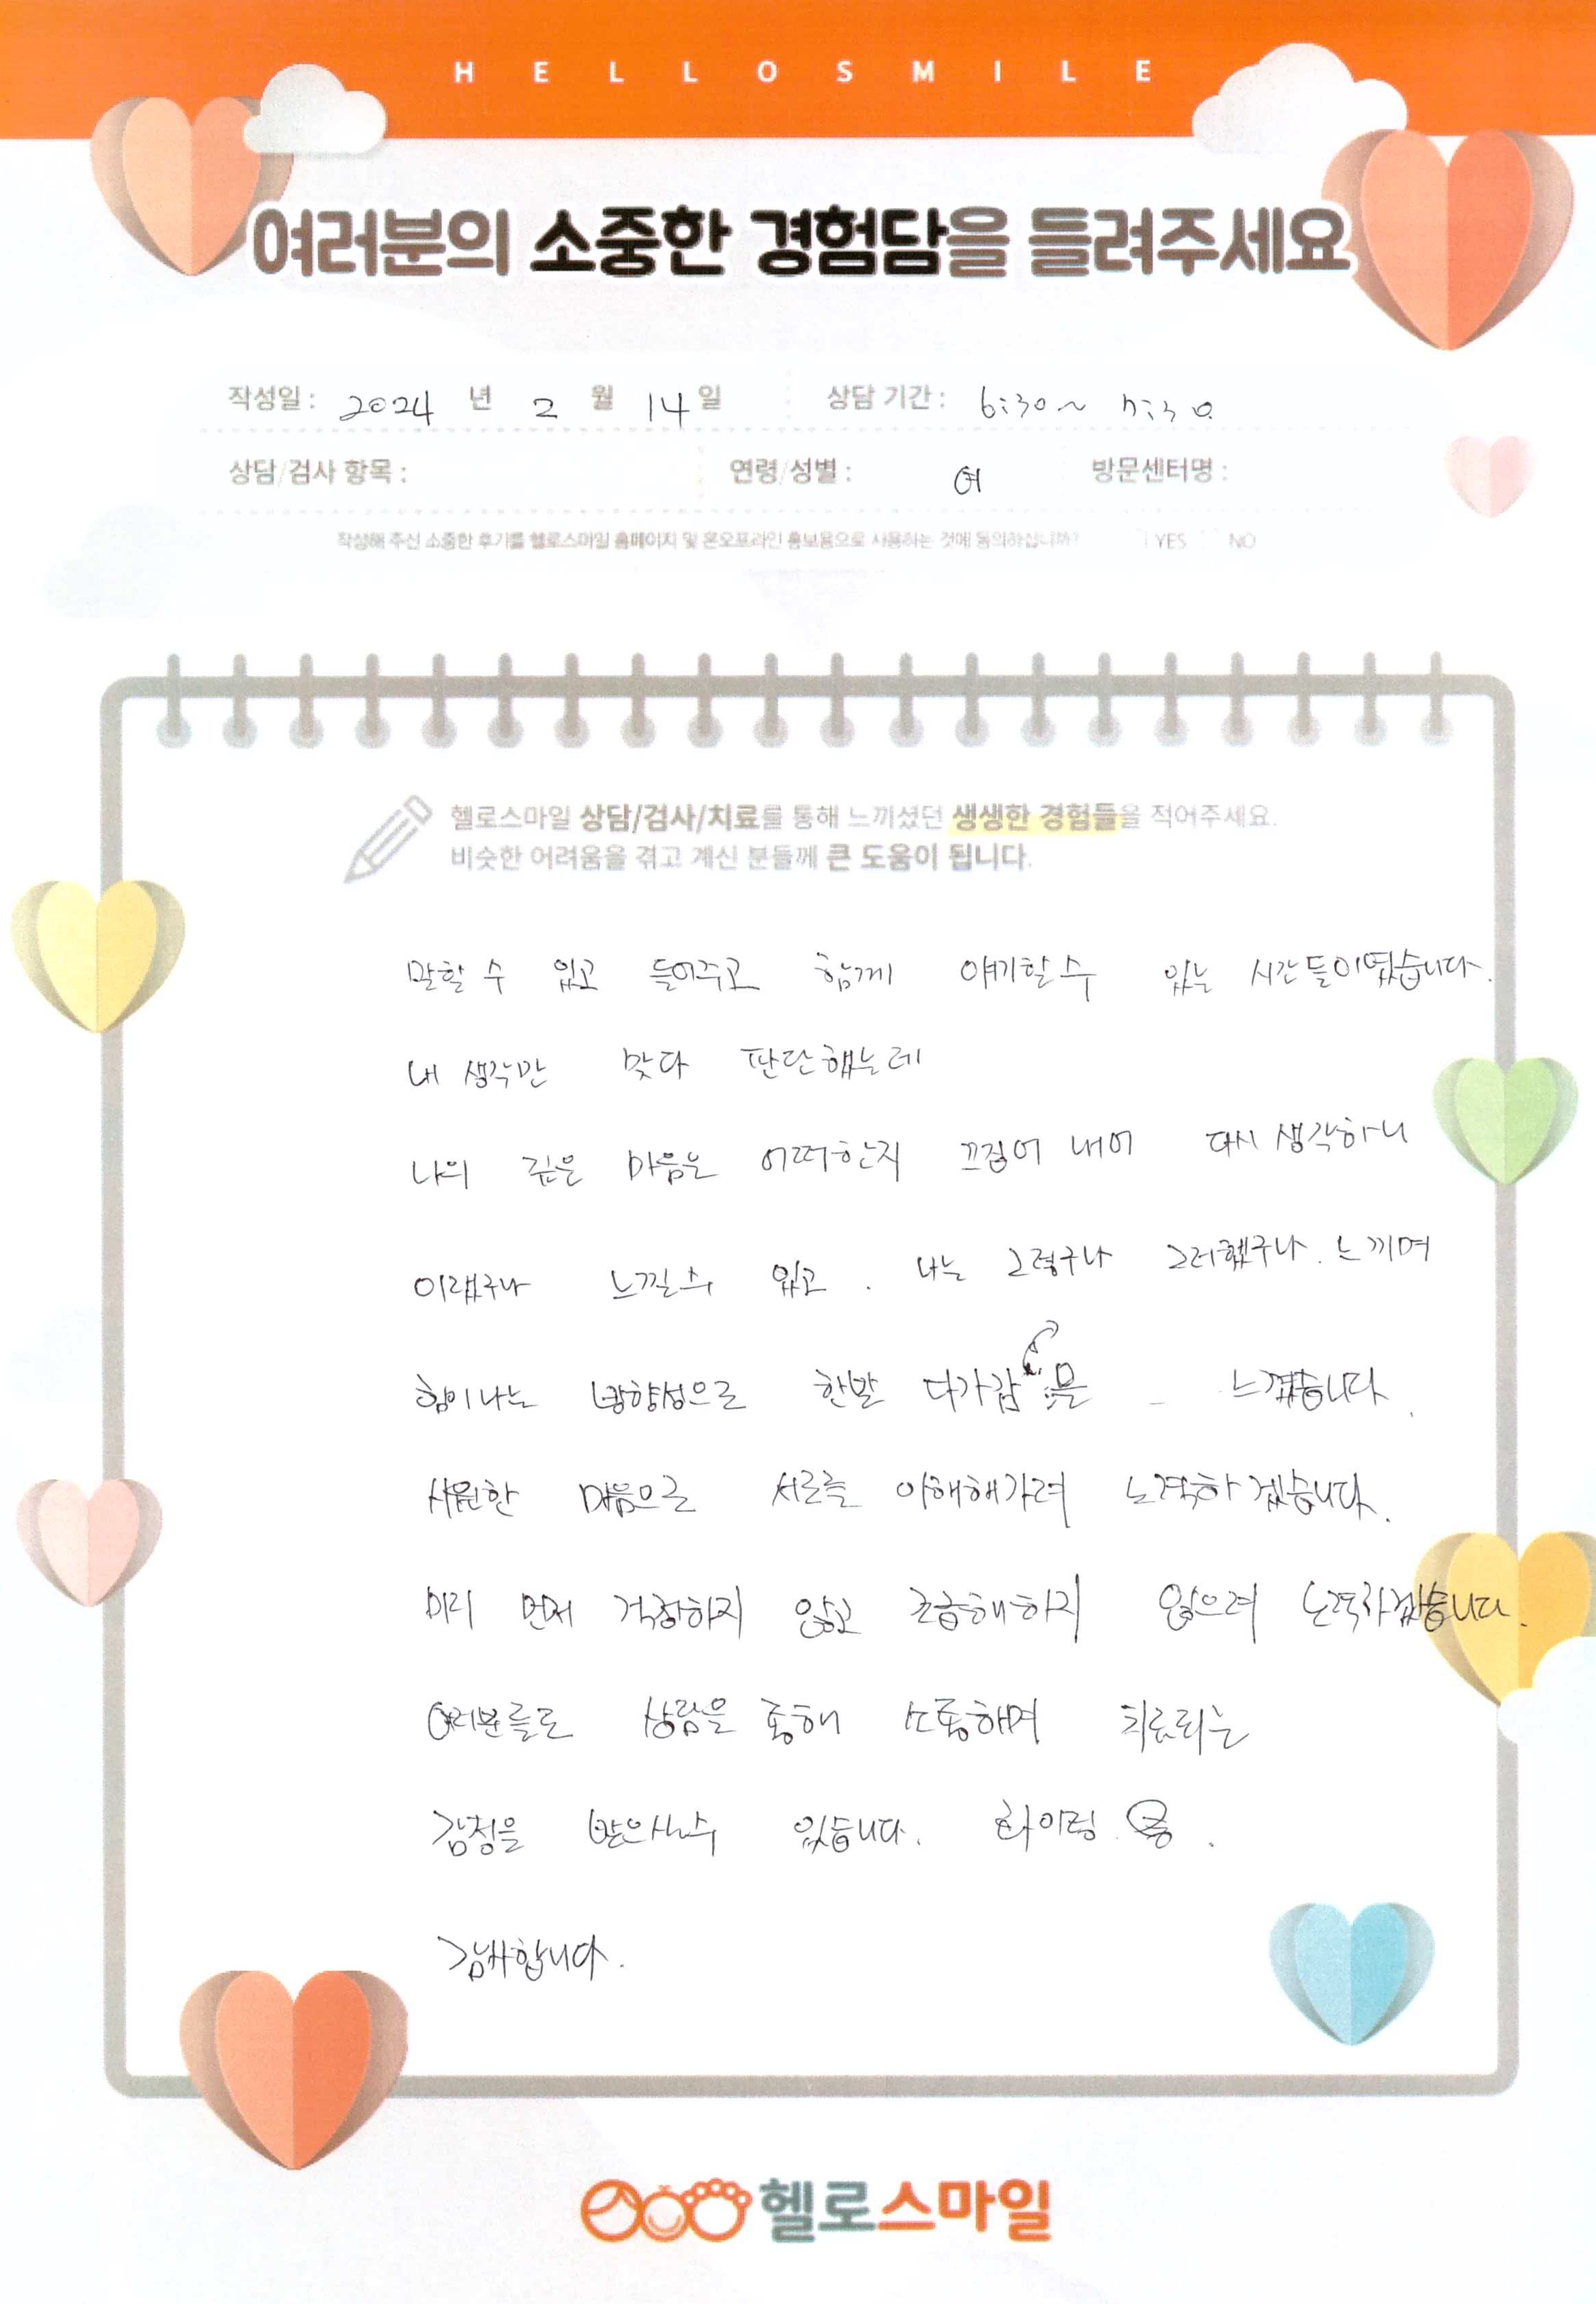 HELLOSMILE
여러분의 소중한 경험담을 들려주세요
작성일 : 2024 년 2 월 14 일 상담 기간 : 6:30~ 7:30
상담/검사 항목 : 연령/성별 : 여 방문센터명 :
작성해 주신 소중한 후기를 헬로스마일 홈페이지 및 온오프라인 홍보용으로 사용하는 것에 동의하십니까? YES NO
헬로스마일 상담/검사/치료를 통해 느끼셨던 생생한 경험들을 적어주세요.
비슷한 어려움을 겪고 계신 분들께 큰 도움이 됩니다.
말할 수 있고 들어주고 함께 얘기할 수 있는 시간들이였습니다.
내 생각만 맞다 판단했는데
나의 깊은 마음은 어떠한지 끄집어 내어 다시 생각하니
이랬구나 느낄수 있고. 나는 그렇구나 그러했구나. 느끼며
힘이나는 방향성으로 한발 다가감을 느꼈습니다.
시원한 마음으로 서로를 이해해가려 노력하겠습니다.
미리 먼저 걱정하지 않고 조급해하지 않으려 노력하겠습니다.
여러분들도 상담을 통해 소통하며 치료되는
감정을 받으실수 있습니다. 화이팅.
감사합니다.
헬로스마일